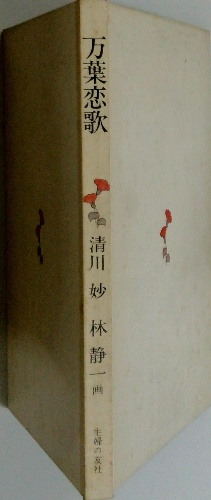 万葉恋歌
清川妙 林静一画
主婦の友社